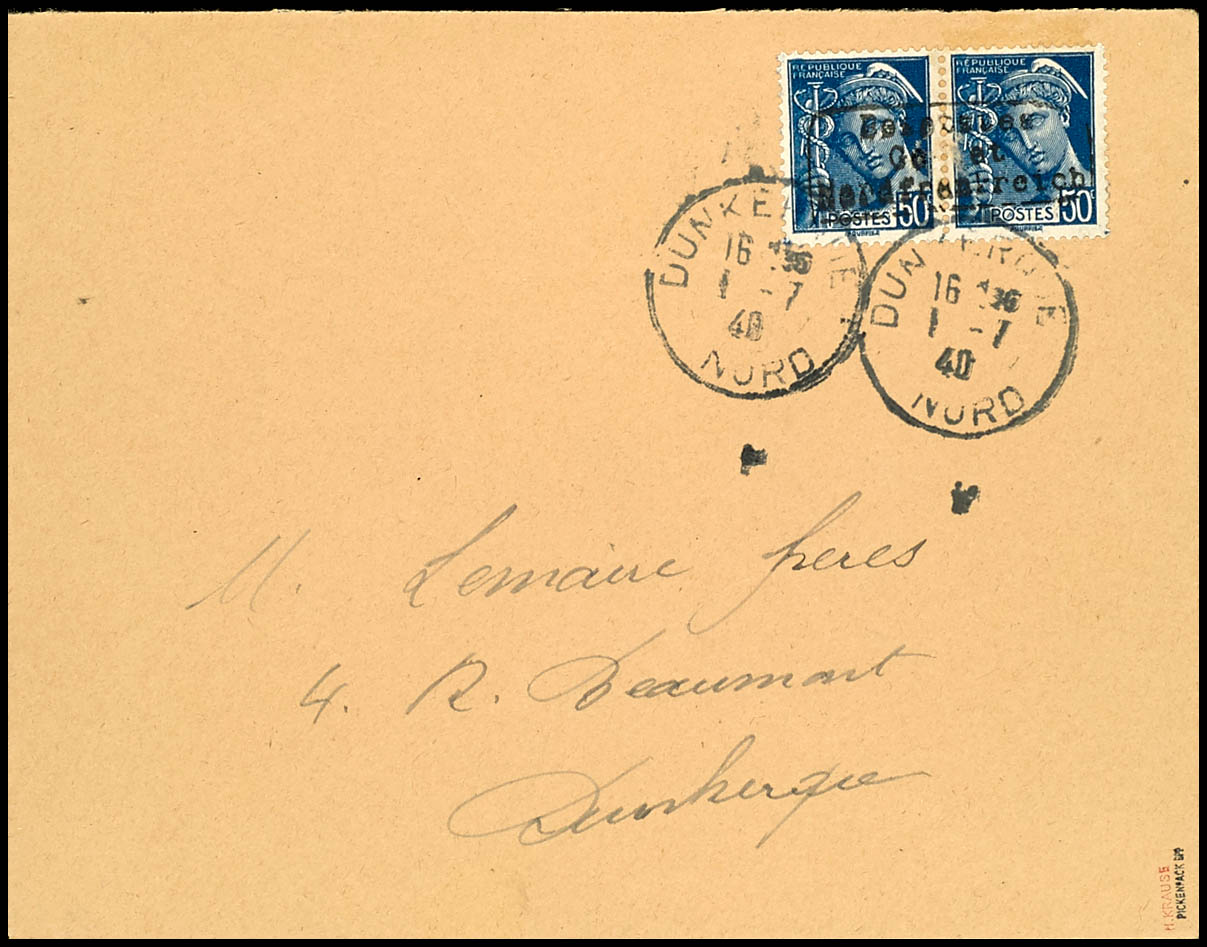 RÉPUBLIQUE
FRANÇAISE
RÉPUBLIQUE
FRANÇAISE
Besetztes
Gebiet
Nordfrankreich
POSTES 50c
POSTES 50c
DUNKERQUE
16 36
1 -7
40
NORD
DUNKERQUE
16 36
1 -7
40
NORD
M. Lemaire frères
4. R. Beaumont
Dunkerque
H.KRAUSE
PICKENPACK BPP